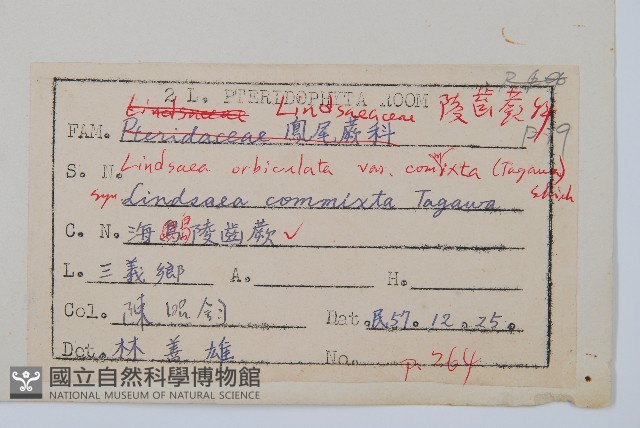 2 L. PTERIDOPHYTA ROOM
Lindsaeaceae Lindsaeaceae 陵齒蕨科
FAM. Pteridaceae 鳳尾蕨科
S. N. Lindsaea orbiculata var. commixta (Tagawa)
syn Lindsaea commixta Tagawa
C. N. 海島陵齒蕨 ✓
L. 三義鄉 A. H.
Col. 陳 昭 鈞 Dat. 民57. 12. 25.
Det. 林 善 雄 No. p. 264
國立自然科學博物館
NATIONAL MUSEUM OF NATURAL SCIENCE